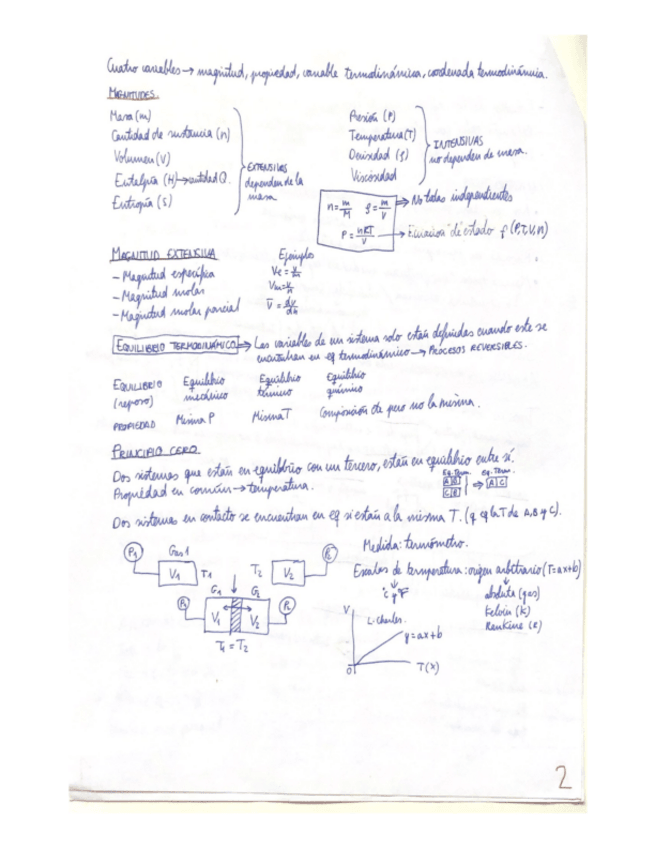 Cuatro variables → magnitud, propiedad, variable termodinámica, coordenada termodinámica.
MAGNITUDES.
Masa (m)
Cantidad de sustancia (n)
Volumen (V)
Entalpía (H) → cantidad Q.
Entropía (S)
EXTENSIVAS
dependen de la
masa
Presión (P)
Temperatura (T)
Densidad (ρ)
Viscosidad
INTENSIVAS
no dependen de masa.
n = m/M ρ = m/V
P = nRT/V
⇒ No todas independientes
→ Ecuación "de" estado f (P,T,V,n)
MAGNITUD EXTENSIVA Ejemplos
- Magnitud específica
- Magnitud molar
- Magnitud molar parcial
EQUILIBRIO TERMODINÁMICO → Las variables de un sistema solo están definidas cuando este se
encuentran en eq termodinámico → PROCESOS REVERSIBLES.
EQUILIBRIO Equilibrio Equilibrio Equilibrio
(reposo) mecánico térmico químico
PROPIEDAD Misma P Misma T Composición de pero no la misma.
PRINCIPIO CERO
Dos sistemas que están en equilibrio con un tercero, están en equilibrio entre sí.
Propiedad en común → temperatura.
Eq. Term. Eq. Term.
A B
C B ⇒ A C
Dos sistemas en contacto se encuentran en eq si están a la misma T.
Medida: termómetro.
Escalas de temperatura: origen arbitrario (T=ax+b)
°C y °F
absoluta (gas)
Kelvin (K)
Rankine (R)
P1 Gas 1
V1 T1
T2 V2
P2
G1 G2
V1 V2
T1 = T2
V
L. Charles.
y=ax+b
0
T(x)
2